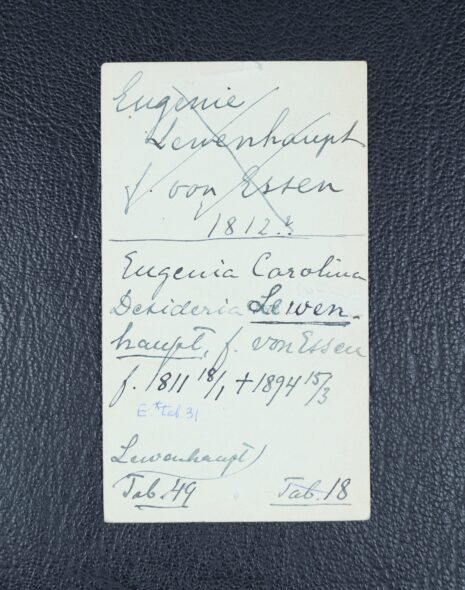 Eugenie
Lewenhaupt
f. von Essen
1812.
Eugenia Carolina
Desideria Lewen-
haupt, f. von Essen
f. 1811 18/1 + 1894 15/3
E. tab. 31
Lewenhaupt
Tab. 49 Tab. 18